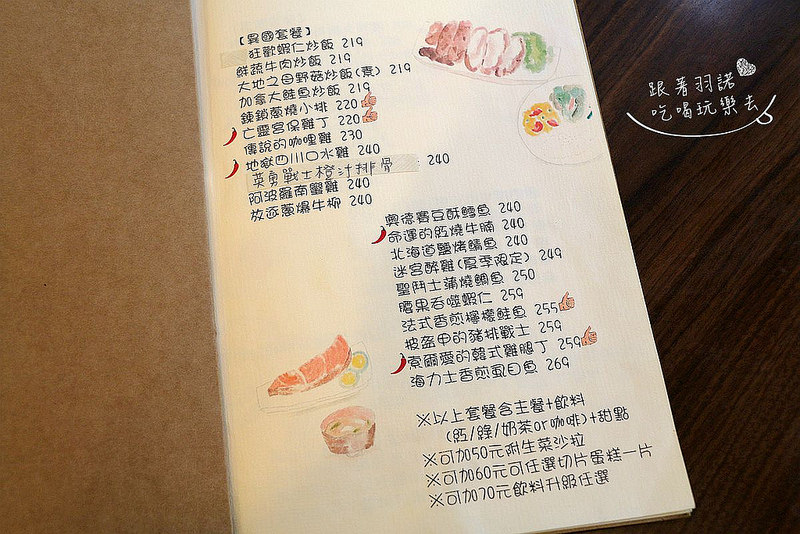 【異國套餐】
狂歡蝦仁炒飯 219
鮮蔬牛肉炒飯 219
大地之母野菇炒飯(素) 219
加拿大鮭魚炒飯 219
鍊鎖蔥燒小排 220
亡靈宮保雞丁 220
傳說的咖哩雞 230
地獄四川口水雞 240
英勇戰士橙汁排骨 240
阿波羅南蠻雞 240
放逐蔥爆牛柳 240
奧德賽豆酥鱈魚 240
命運的紅燒牛腩 240
北海道鹽烤鯖魚 240
迷宮醉雞(夏季限定) 249
聖鬥士蒲燒鯛魚 250
腰果吞噬蝦仁 259
法式香煎檸檬鮭魚 255
披盔甲的豬排戰士 259
索爾愛的韓式雞腿丁 259
海力士香煎虱目魚 269
※以上套餐含主餐+飲料
(紅/綠/奶茶or咖啡)+甜點
※可加50元附生菜沙拉
※可加60元可任選切片蛋糕一片
※可加70元飲料升級任選
跟著羽諾
吃喝玩樂去